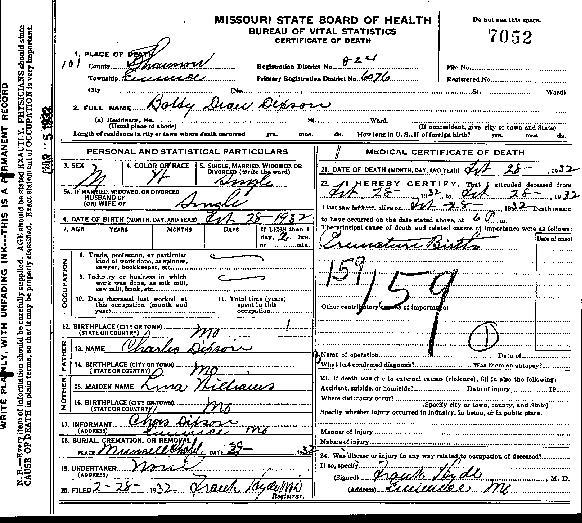 MISSOURI STATE BOARD OF HEALTH
BUREAU OF VITAL STATISTICS
CERTIFICATE OF DEATH
Do not use this space.
7052
1. PLACE OF DEATH
County Shannon
Township Eminence
City
Registration District No. 824
Primary Registration District No. 6076
File No.
Registered No.
St.
Ward)
2. FULL NAME Bobby Dean Dixson
(a) Residence, No. St. Ward.
(Usual place of abode) (If nonresident, give city or town and State)
Length of residence in city or town where death occurred yrs. mos. ds. How long in U.S., if of foreign birth? yrs. mos. ds.
PERSONAL AND STATISTICAL PARTICULARS
3. SEX M
4. COLOR OR RACE W
5. SINGLE, MARRIED, WIDOWED OR DIVORCED (write the word) Single
5a. IF MARRIED, WIDOWED, OR DIVORCED
HUSBAND OF
(OR) WIFE OF Single
6. DATE OF BIRTH (MONTH, DAY, AND YEAR) Feb 28-1932
7. AGE YEARS MONTHS DAYS If LESS than 1 day, 2 hrs.
OCCUPATION
8. Trade, profession, or particular kind of work done, as spinner, sawyer, bookkeeper, etc.
9. Industry or business in which work was done, as silk mill, saw mill, bank, etc.
10. Date deceased last worked at this occupation (month and year)
11. Total time (years) spent in this occupation
12. BIRTHPLACE (CITY OR TOWN)
(STATE OR COUNTRY) Mo
FATHER
13. NAME Charlis Dixson
14. BIRTHPLACE (CITY OR TOWN)
(STATE OR COUNTRY) Mo
MOTHER
15. MAIDEN NAME Lina Williams
16. BIRTHPLACE (CITY OR TOWN)
(STATE OR COUNTRY) Mo
17. INFORMANT Chas Dixson
(ADDRESS) Eminence Mo
18. BURIAL, CREMATION, OR REMOVAL
PLACE DATE 29- 1932
19. UNDERTAKER None
(ADDRESS)
20. FILED 2-28-1932 Frank Hyde MD
Registrar.
MEDICAL CERTIFICATE OF DEATH
21. DATE OF DEATH (MONTH, DAY, AND YEAR) Feb 28- 1932
22. I HEREBY CERTIFY, That I attended deceased from
Feb 28-, 1932 to Feb 28-, 1932
I last saw h alive on Feb-28-, 1932 Death is said
to have occurred on the date stated above, at 6 P m.
The principal cause of death and related causes of importance were as follows:
Date of onset
Premature Birth
159
159
Other contributory causes of importance:
1
Name of operation Date of
What test confirmed diagnosis? Was there an autopsy?
23. If death was due to external causes (violence), fill in also the following:
Accident, suicide, or homicide? Date of injury , 19
Where did injury occur?
(Specify city or town, county, and State)
Specify whether injury occurred in industry, in home, or in public place.
Manner of injury
Nature of injury
24. Was disease or injury in any way related to occupation of deceased?
If so, specify
(Signed) Frank Hyde, M. D.
(Address) Eminence, Mo
WRITE PLAINLY, WITH UNFADING INK---THIS IS A PERMANENT RECORD
N. B.—Every item of information should be carefully supplied. AGE should be stated EXACTLY. PHYSICIANS should state
CAUSE OF DEATH in plain terms, so that it may be properly classified. Exact statement of OCCUPATION is very important.
MAR 5 1932